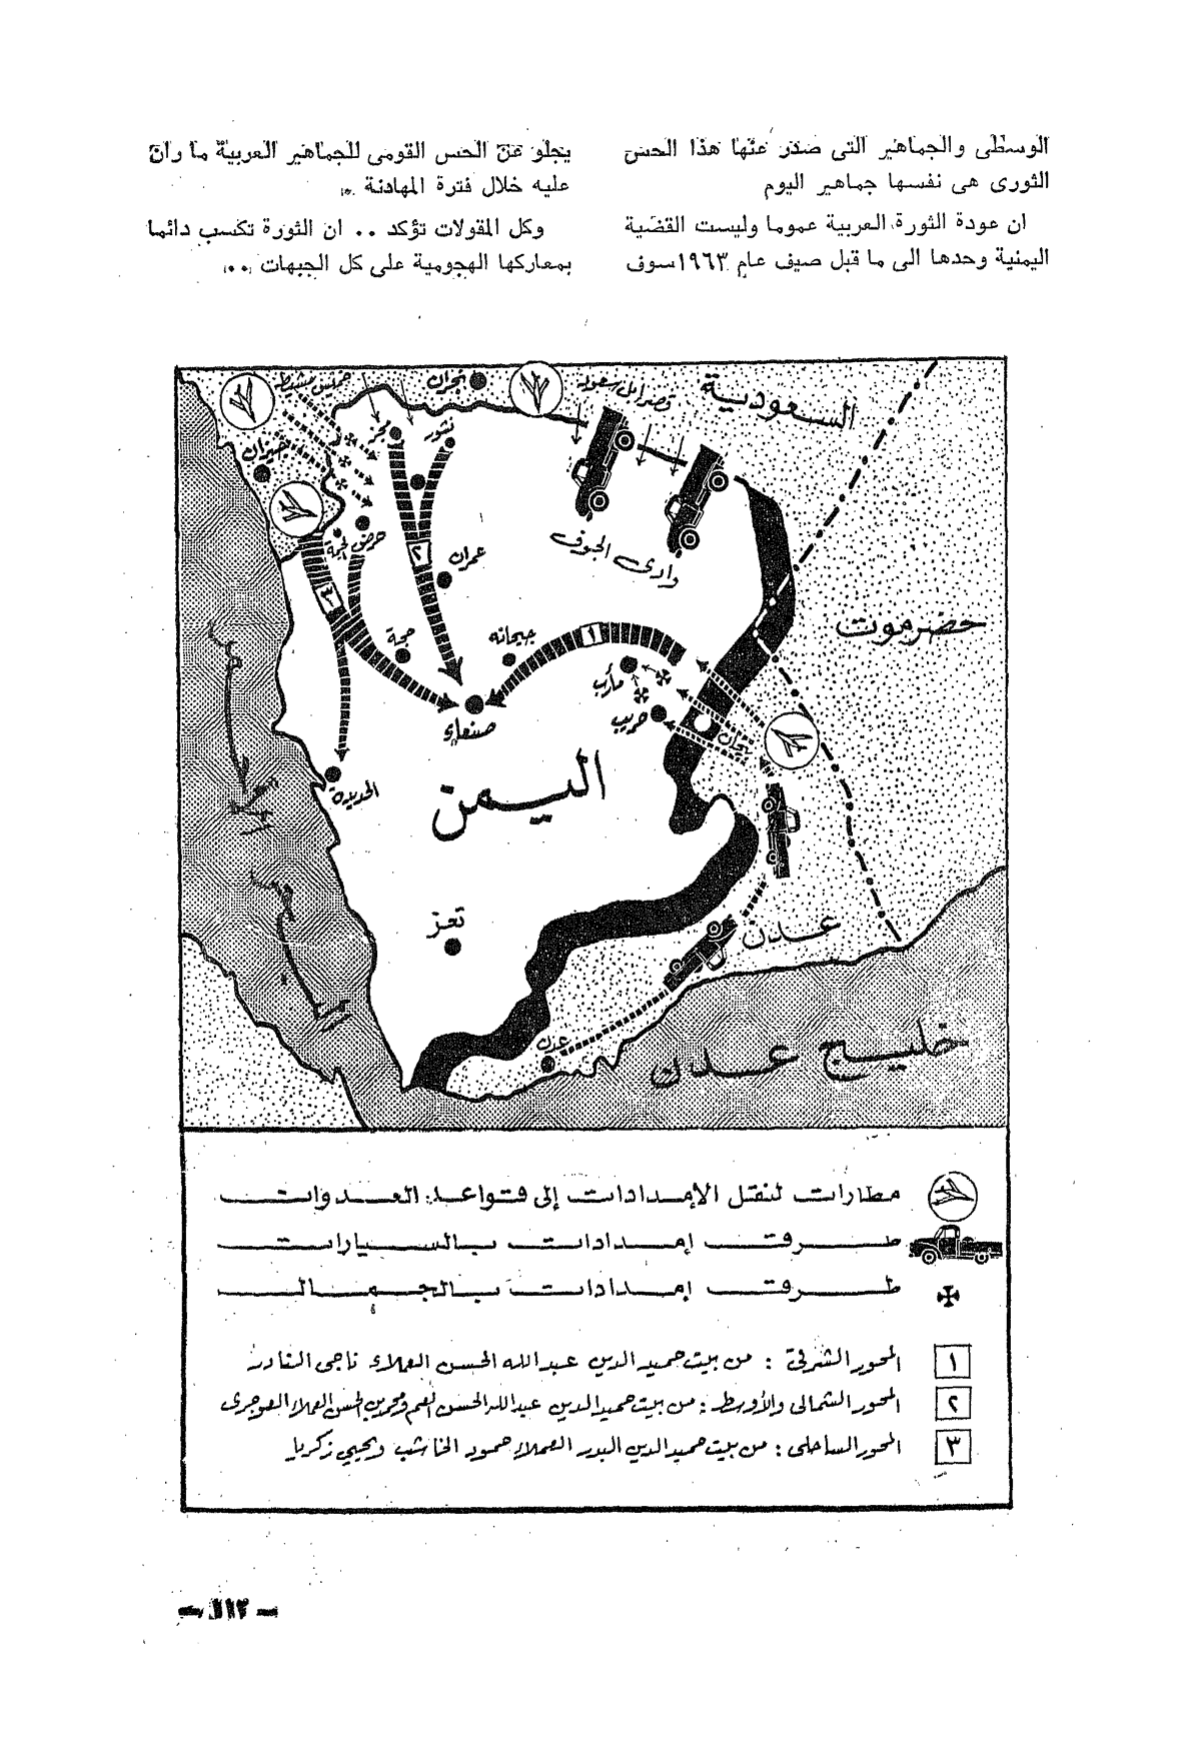 الوسطى والجماهير التى صدر عنها هذا الحس
الثورى هى نفسها جماهير اليوم
ان عودة الثورة العربية عموما وليست القضية
اليمنية وحدها الى ما قبل صيف عام ١٩٦٣ سوف
يجلو عن الحس القومى للجماهير العربية ما ران
عليه خلال فترة المهادنة ..
وكل المقولات تؤكد .. ان الثورة تكسب دائما
بمعاركها الهجومية على كل الجبهات ..
السعودية
قصر ابن سعود
نجران
خميس مشيط
جيزان
نشور
حرض
عمران
وادى الجوف
حضرموت
حجة
جيحانه
مأرب
حريب
بيحان
صنعاء
الحديدة
اليمن
تعز
عدن
عدن
خليج عدن
البحر الأحمر
١
٢
٣
مطارات لنقل الإمدادات إلى قواعد العدوان
طرق إمدادات بالسيارات
طرق إمدادات بالجمال
١ المحور الشرقى : من بيت حميد الدين عبد الله الحسن العملاء ناجى الغادر
٢ المحور الشمالى والأوسط : من بيت حميد الدين عبد الله الحسن ومحمد بن الحسن العملاء
٣ المحور الساحلى : من بيت حميد الدين البدر العملاء حمود الخاشب ويحيى زكريا